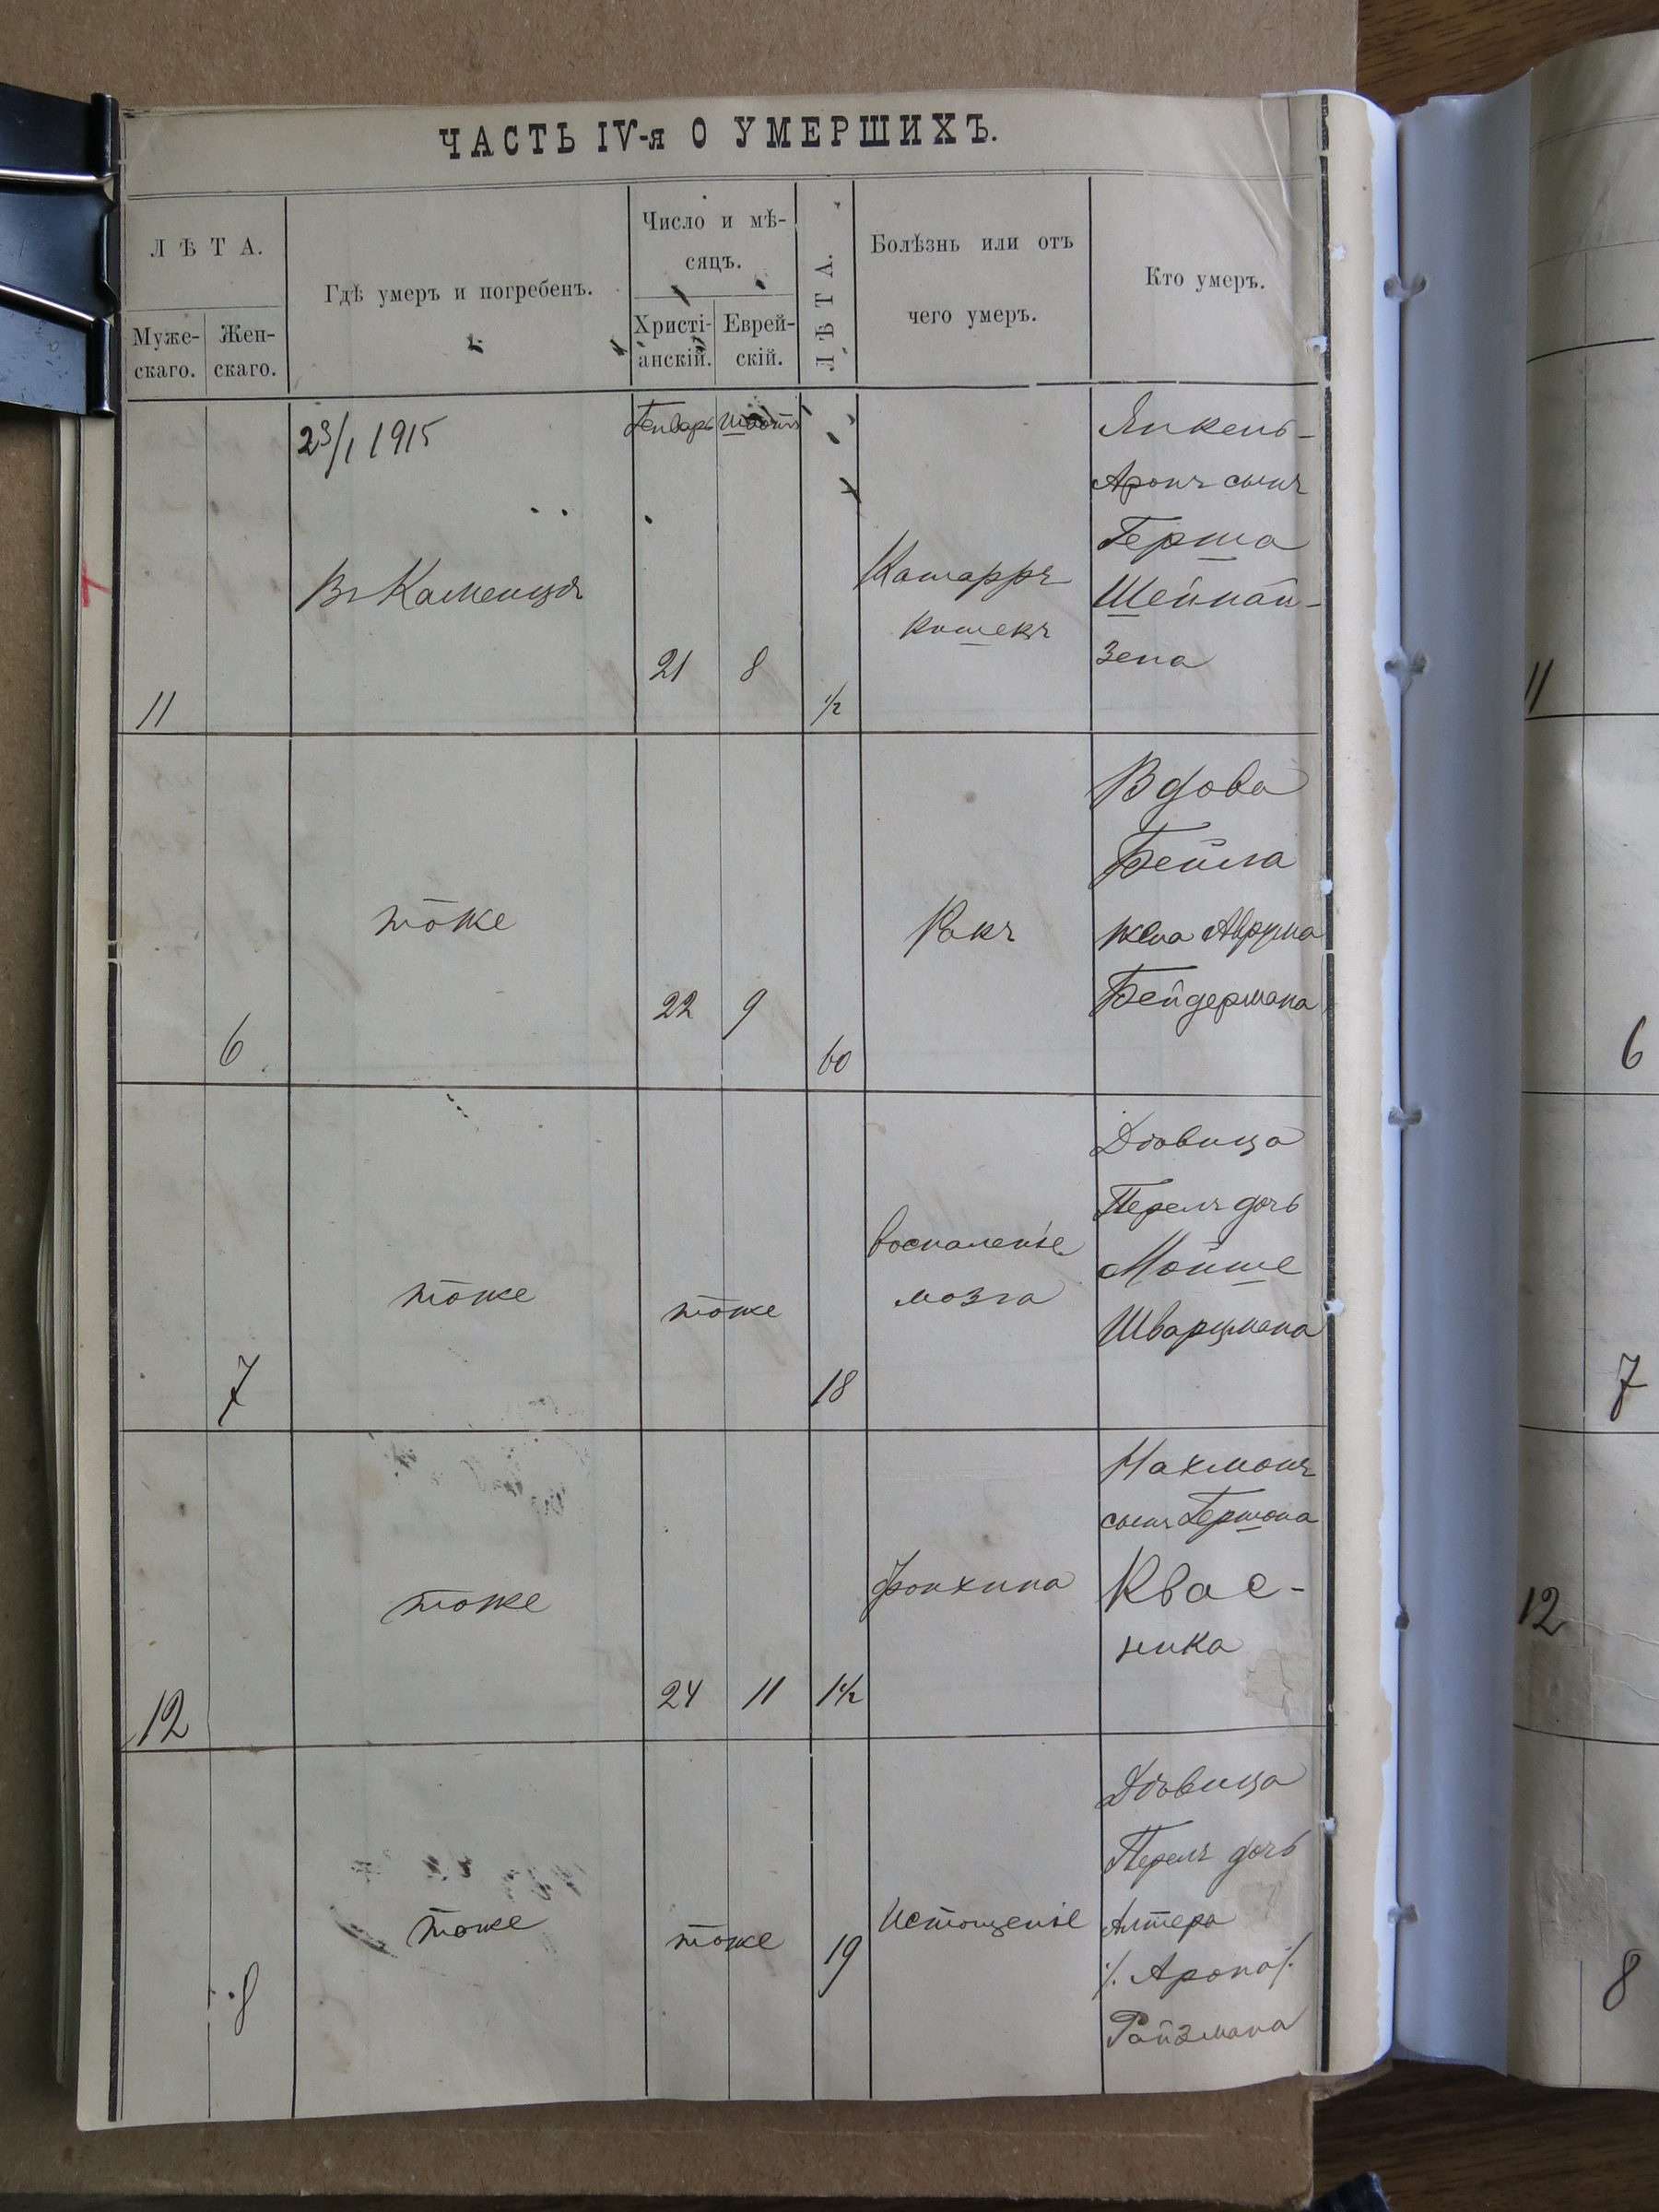 ЧАСТЬ IV-я О УМЕРШИХЪ.
ЛѢТА.
Муже-
скаго.
Жен-
скаго.
Гдѣ умеръ и погребенъ.
Число и мѣ-
сяцъ.
Христі-
анскій.
Еврей-
скій.
ЛѢТА.
Болѣзнь или отъ
чего умеръ.
Кто умеръ.
11
23/1 1915
Въ Каменцѣ
Генварь
21
Шватъ
8
1/2
Катарръ
кишекъ
Янкель-
Аронъ сынъ
Герша
Шейнай-
зена
6
тоже
22
9
60
Ракъ
Вдова
Бейла
жена Аврума
Бейдермана
7
тоже
тоже
18
воспаленіе
мозга
Дѣвица
Перель дочь
Мойше
Шварцмана
12
тоже
24
11
1 1/2
Бронхина
Нахманъ
сынъ Гершона
Квас-
ника
8
тоже
тоже
19
Истощеніе
Дѣвица
Перель дочь
Алтера
/. Арона /.
Райзмана
11
6
7
12
8